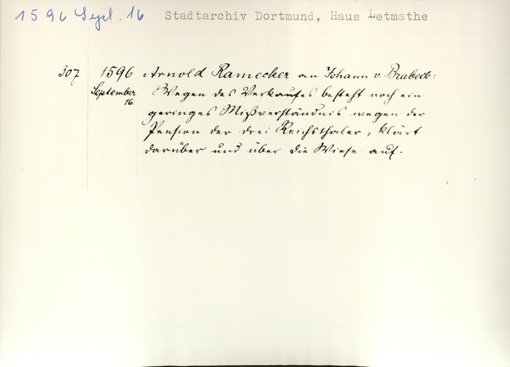 1596 Sept. 16 Stadtarchiv Dortmund, Haus Letmathe
307 1596 Arnold Ramecker an Johann v. Brabeck:
September 16. Wegen des Verkaufes besteht noch ein
geringes Mißverständnis wegen der
Pension der drei Reichsthaler, klärt
darüber und über die Wiese auf.